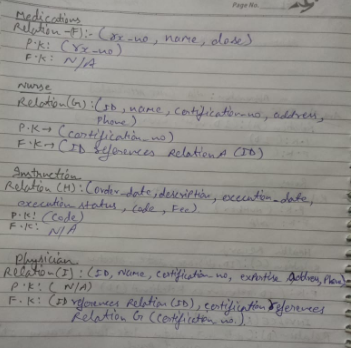 Page No.
Medications
Relation -(F):- (rx-no, name, dose)
P.K: (rx-no)
F.K: N/A
Nurse
Relation(G): (ID, name, certification no, address,
phone)
P.K → (certification_no)
F.K → (ID references Relation A (ID)
Instruction
Relation (H): (order_date, description, execution_date,
execution status, code, Fee)
P.K: (code)
F.K: N/A
Physician
Relation(I): (ID, Name, certification no, expertise, Address, Phone)
P.K: (N/A)
F.K: (ID references Relation (ID), certification references
Relation G (certification no.)